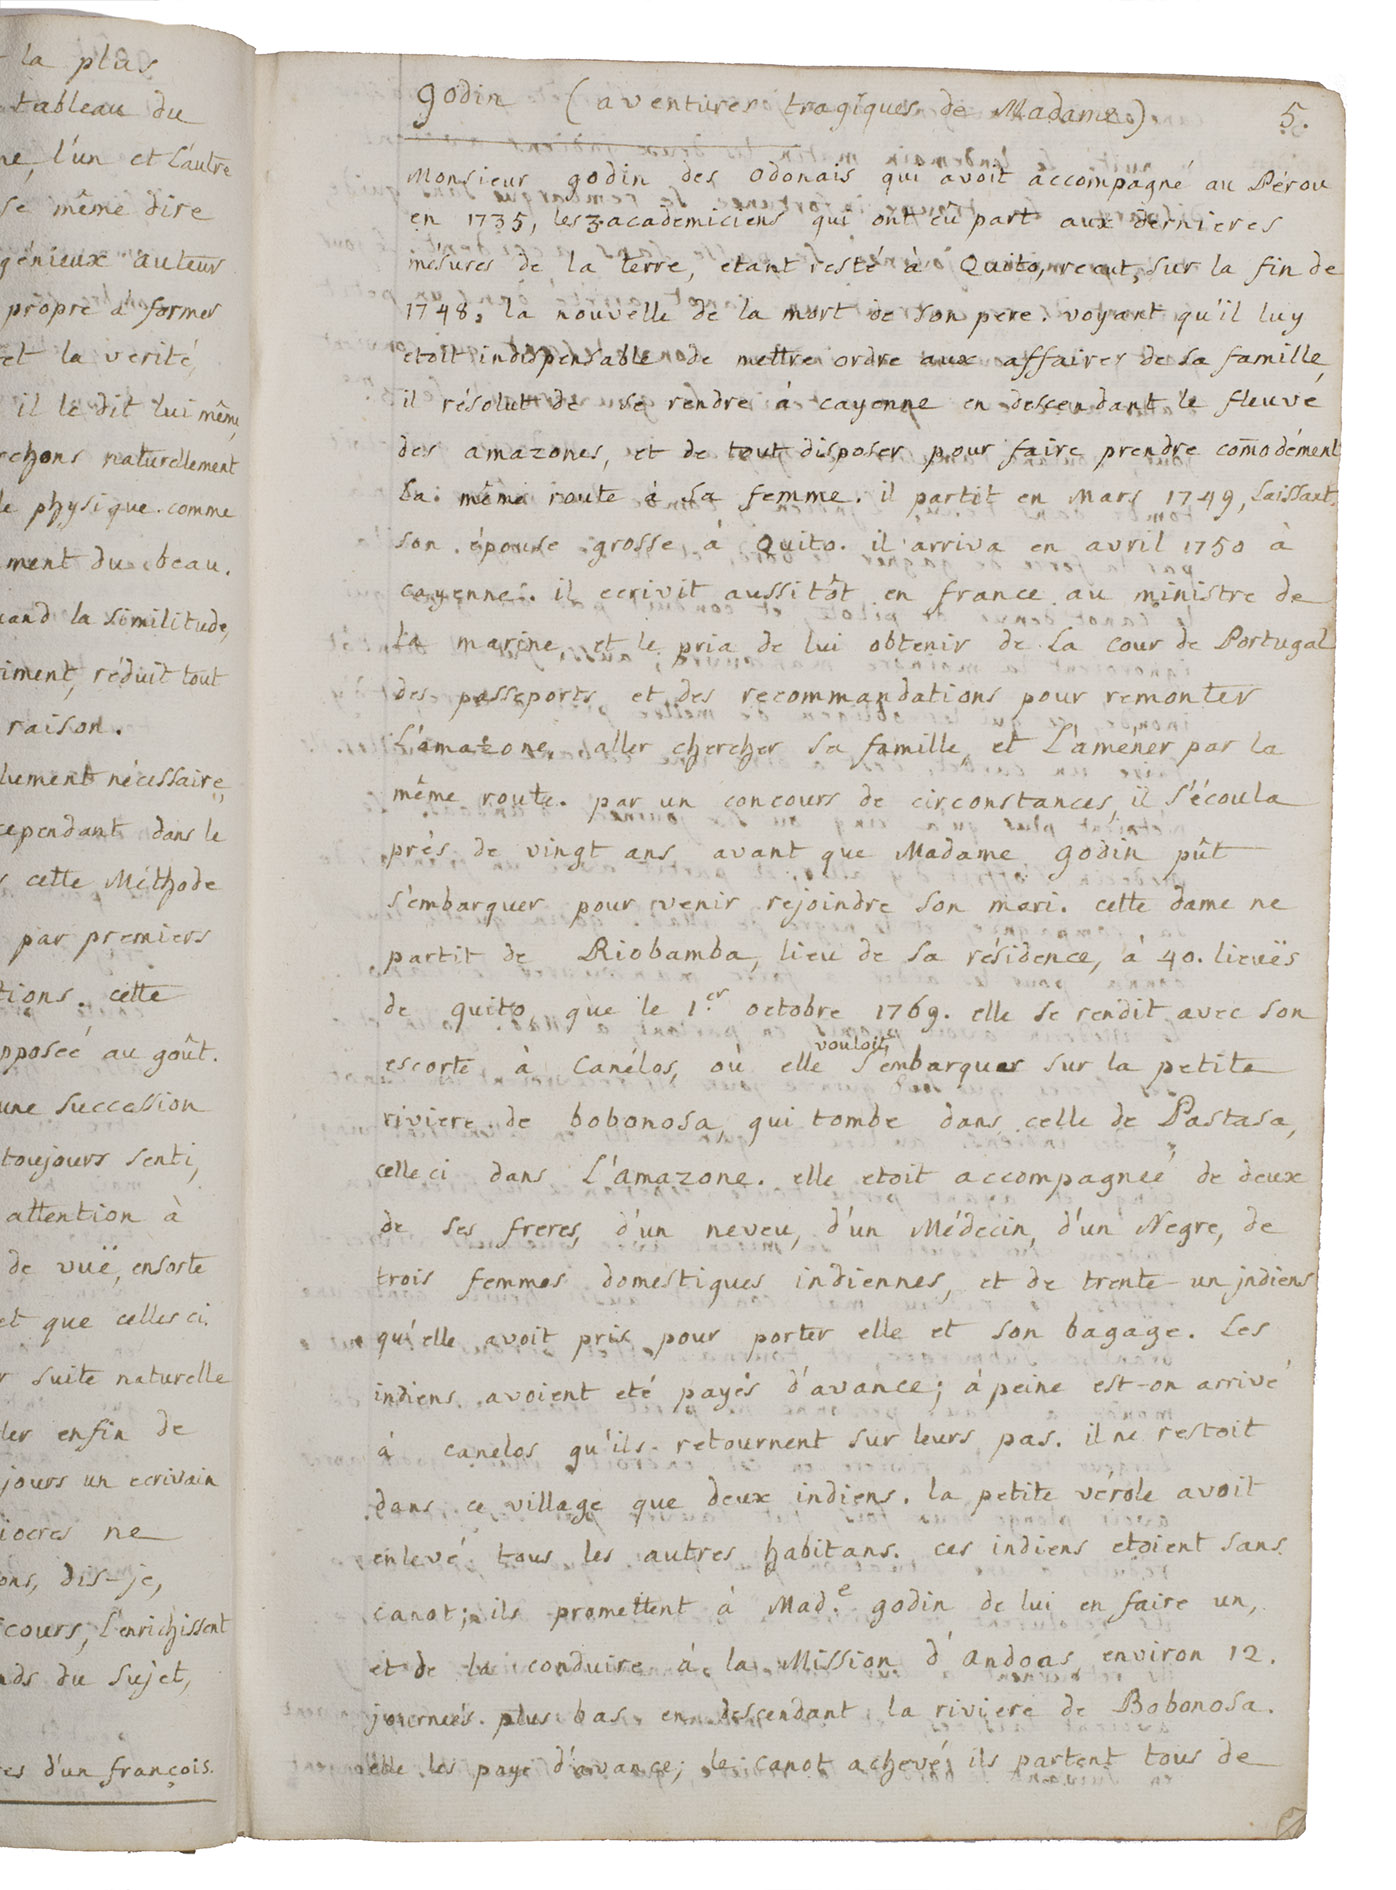 la plus
tableau du
ne, l'un et l'autre
se même dire
génieux auteur
propre à former
et la verité,
il le dit lui même,
rchons naturellement
le physique comme
ment du beau.
uand la similitude,
riment, réduit tout
raison.
lument nécessaire,
cependant dans le
cette Méthode
par premiers
tions. cette
pposeé au goût.
une succession
toujours senti,
attention à
de vuë, ensorte
et que celles ci.
r suite naturelle
ler enfin de
jours un ecrivain
iocres ne
ons, dis-je,
cours, l'enrichissent
nds du sujet,
es d'un françois.
godin (aventures tragiques de Madame) 5.
Monsieur godin des odonais qui avoit accompagné au Pérou
en 1735, les 3 academiciens qui ont eû part aux dernieres
mésures de la terre, etant resté à Quito, recut, sur la fin de
1748, la nouvelle de la mort de son pere. voyant qu'il luy
etoit indispensable de mettre ordre aux affaires de sa famille,
il résolut de se rendre à cayenne en descendant le fleuve
des amazones, et de tout disposer pour faire prendre com̄odément
la même route à sa femme. il partit en Mars 1749, laissant
son épouse grosse à Quito. il arriva en avril 1750 à
cayenne. il ecrivit aussitôt en france au ministre de
la marine, et le pria de lui obtenir de la cour de Portugal
des passeports et des recommandations pour remonter
l'amazone, aller chercher sa famille, et l'amener par la
même route. par un concours de circonstances, il s'écoula
prés de vingt ans avant que Madame godin pût
s'embarquer pour venir rejoindre son mari. cette dame ne
partit de Riobamba, lieu de sa résidence, à 40. lieuës
de quito, que le 1.er octobre 1769. elle se rendit avec son
escorte à Canélos, où elle vouloit s'embarquer sur la petite
riviere de bobonosa, qui tombe dans celle de Pastasa,
celle ci dans L'amazone. elle etoit accompagneé de deux
de ses freres, d'un neveu, d'un Médecin, d'un Negre, de
trois femmes domestiques indiennes, et de trente-un jndiens
qu'elle avoit pris pour porter elle et son bagage. Les
indiens avoient eté payés d'avance; à peine est-on arrivé
à canelos qu'ils retournent sur leurs pas. il ne restoit
dans ce village que deux indiens. la petite vérole avoit
enlevé tous les autres habitans. ces indiens etoient sans
canot; ils promettent à Mad.e godin de lui en faire un,
et de la conduire à la Mission d'Andoas environ 12.
journeés plus bas en descendant la riviere de Bobonosa.
elle les paye d'avance; le canot achevé, ils partent tous de